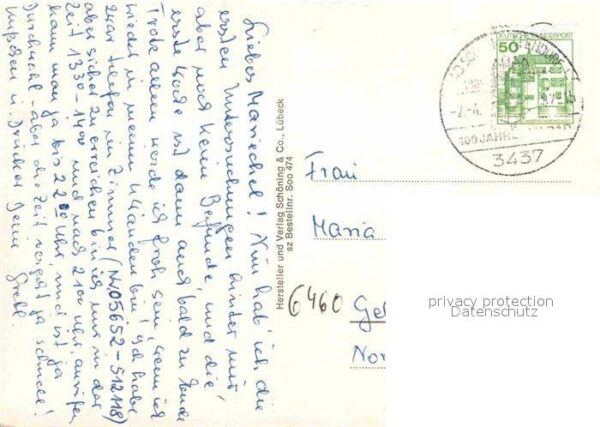 Liebes Mariechel! Nun hab' ich die
ersten Untersuchungen hinter mir
aber noch keine Befunde, und die
erste Woche ist dann auch bald zu Ende
Trotz allem werde ich froh sein, wenn ich
wieder in meinen 4 Wänden bin! Ich habe
zwar Telefon im Zimmer (Nr 05652-512118)
aber sicher zu erreichen bin ich nur in der
Zeit 1330-1400 und nach 2100 Uhr, anrufen
kann man ja bis 2200 Uhr, und ist ja
Durchwahl - aber die Zeit vergeht ja schnell!
Hersteller und Verlag Schöning & Co., Lübeck
sz Bestellnr. Soo 474
DEUTSCHE BUNDESPOST
50
100 JAHRE
3437
Frau
Maria
6460 Gel
privacy protection
Datenschutz
Nor